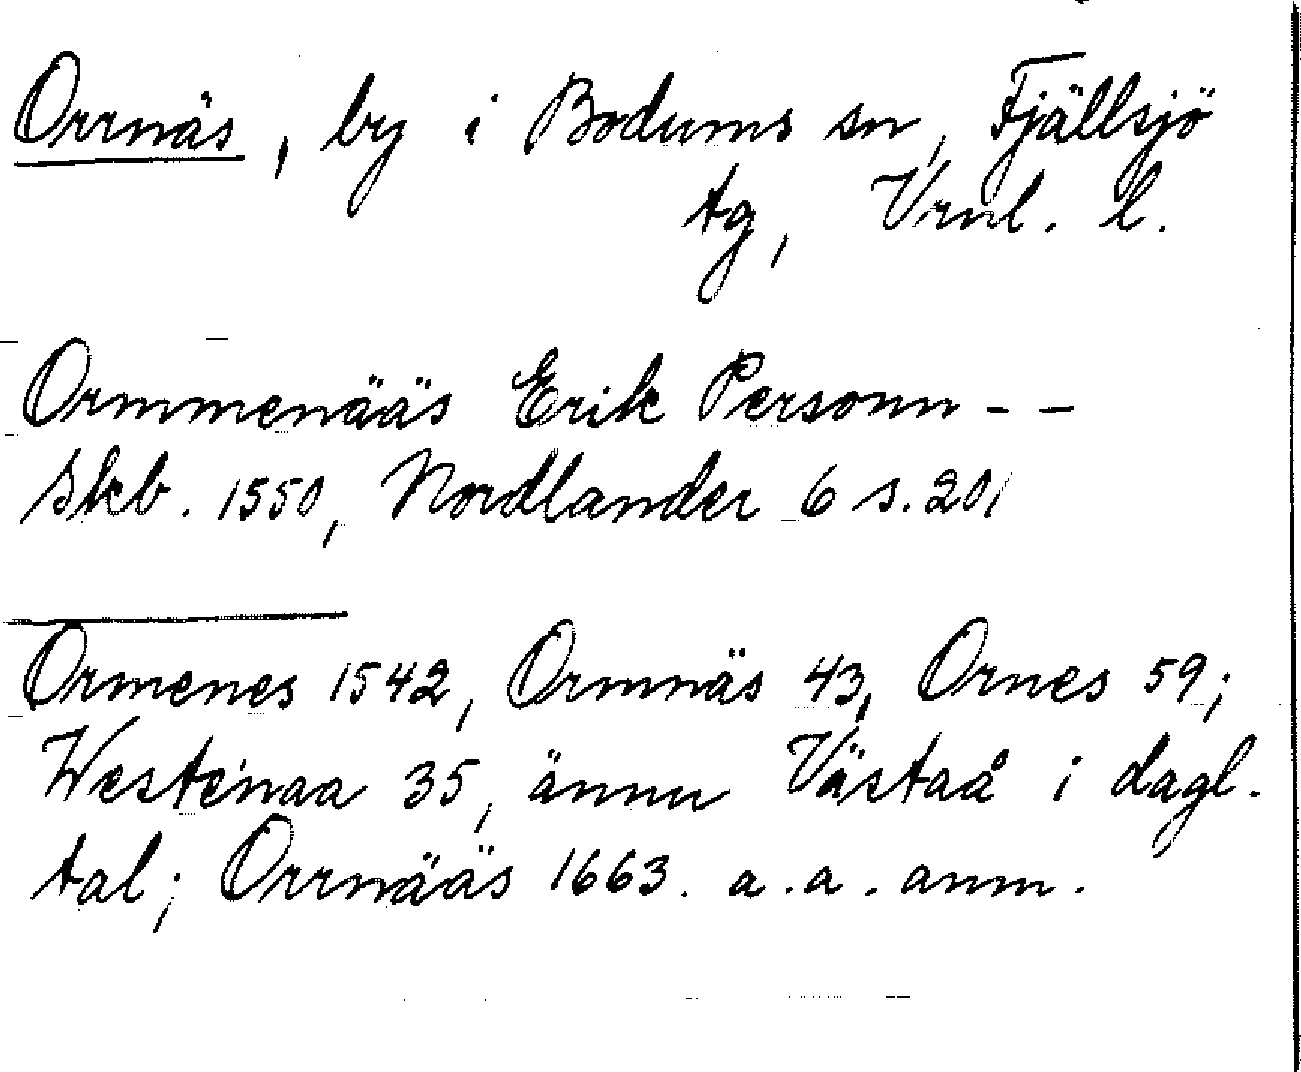 Orrnäs, by i Bodums sn, Fjällsjö
tg, Vrnl. l.
Ormmenääs Erik Personn - -
Skb. 1550, Nordlander 6 s. 201
Ormenes 1542, Ormnäs 43, Ornes 59;
Westenaa 35, ännu Västaå i dagl.
tal; Orrnääs 1663. a.a. anm.